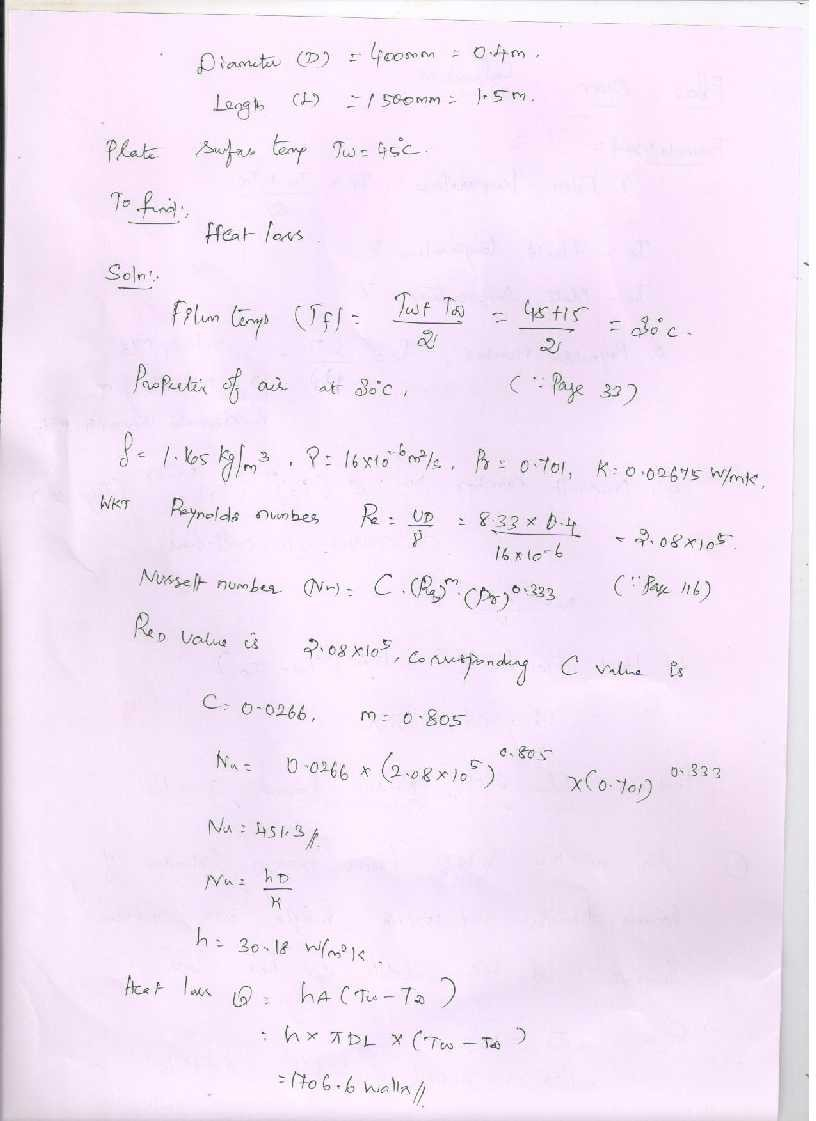 Diameter (D) = 400mm = 0.4m.
Length (L) = 1500mm = 1.5m.
Plate surfas temp Tw = 45°C.
To find:
Heat loss.
Soln:
Film temp (Tf) = (Tw + T∞)/2 = (45+15)/2 = 30°C.
Properties of air at 30°C, (∵ Page 33)
ρ = 1.165 kg/m³, ν = 16×10⁻⁶ m²/s, Pr = 0.701, K = 0.02675 W/mK,
WKT Reynolds number Re = UD/ν = (8.33 × 0.4)/(16×10⁻⁶) = 2.08×10⁵.
Nusselt number (Nu) = C.(Re)^m.(Pr)^0.333 (∵ Page 116)
ReD value is 2.08×10⁵, corresponding C value is
C = 0.0266, m = 0.805
Nu = 0.0266 × (2.08×10⁵)^0.805 × (0.701)^0.333
Nu = 451.3 //.
Nu = hD/K
h = 30.18 W/m²K.
Heat loss Q = hA (Tw − T∞)
= h × πDL × (Tw − T∞)
= 1706.6 watts //